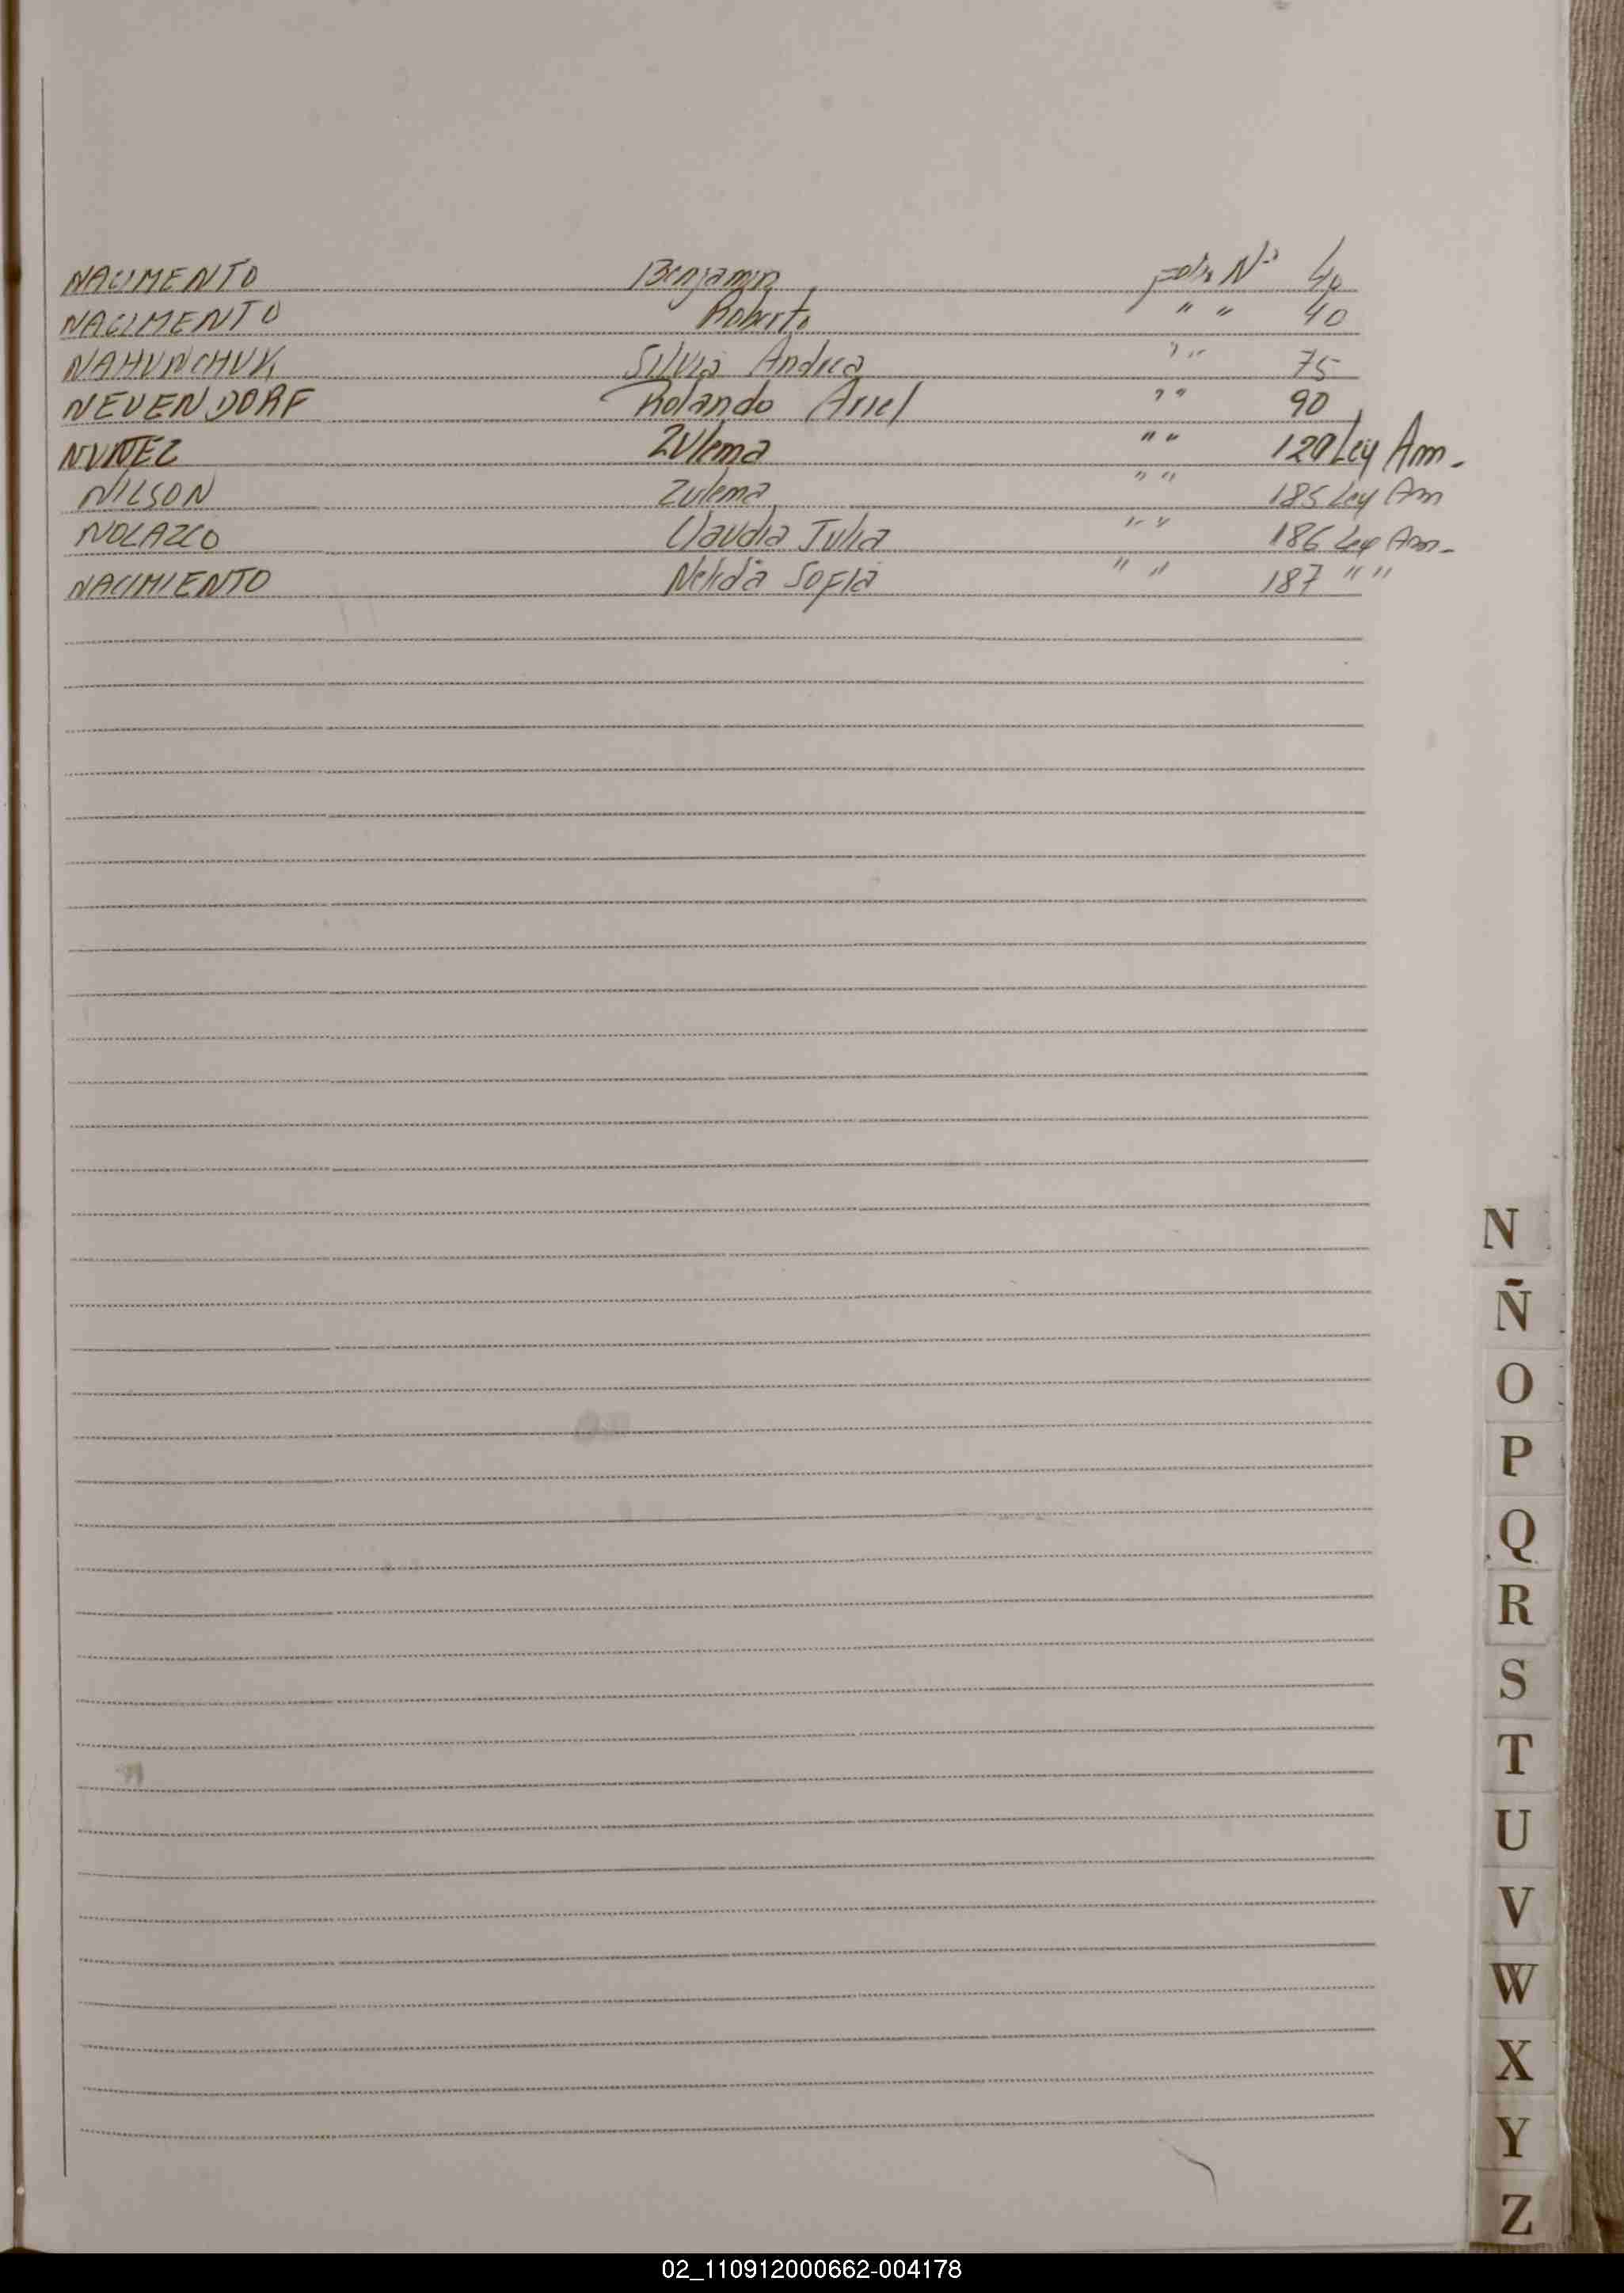 NACIMENTO Benjamin folio Nº 40
NACIMENTO Roberto " " 40
NAHUNCHUK Silvia Andrea " " 75
NEUENDORF Rolando Ariel " " 90
NUÑEZ Zulema " " 129 Ley Am.
NILSON Zulema " " 185 Ley Am
NOLAZCO Claudia Julia " " 186 Ley Am.
NACIMIENTO Nelida Sofia " " 187 " "
N
Ñ
O
P
Q
R
S
T
U
V
W
X
Y
Z
02_110912000662-004178